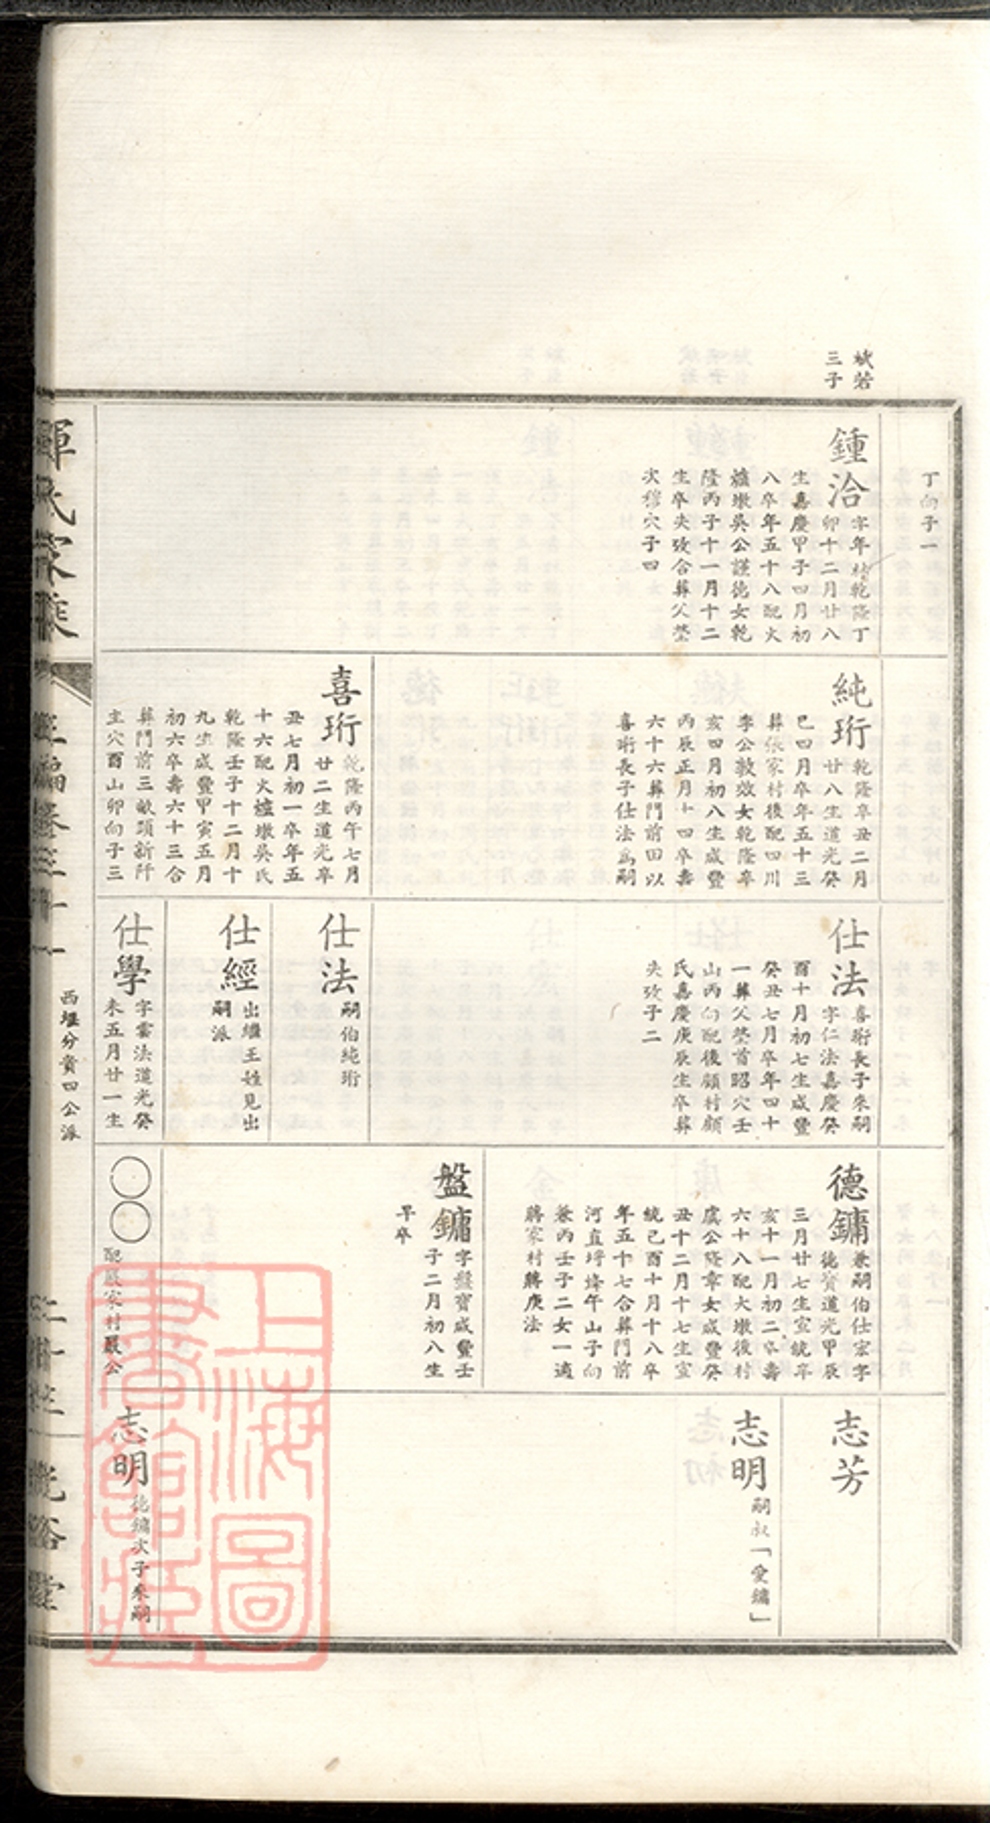 斌若
三子
丁向子一
鍾洽
字年村乾隆丁
卯十二月廿八
生嘉慶甲子四月初
八卒年五十八配火
爐墩吳公謹德女乾
隆丙子十一月十二
生卒失攷合葬父塋
次穆穴子四
純珩
乾隆辛丑二月
廿八生道光癸
巳四月卒年五十三
葬張家村後配四川
李公敦效女乾隆辛
亥四月初八生咸豐
丙辰正月十四卒壽
六十六葬門前田以
喜珩長子仕法爲嗣
喜珩
乾隆丙午七月
廿二生道光辛
丑七月初一卒年五
十六配火爐墩吳氏
乾隆壬子十二月十
九生咸豐甲寅五月
初六卒壽六十三合
葬門前三畝頭新阡
主穴酉山卯向子三
仕法
喜珩長子來嗣
字仁法嘉慶癸
酉十月初七生咸豐
癸丑七月卒年四十
一葬父塋首昭穴壬
山丙向配後顧村顧
氏嘉慶庚辰生卒葬
失攷子二
仕法
嗣伯純珩
仕經
出繼王姓見出
嗣派
仕學
字雲法道光癸
未五月廿一生
德鏞
兼嗣伯仕宗字
德寶道光甲辰
三月廿七生宣統辛
亥十一月初二卒壽
六十八配大墩後村
虞公隆章女咸豐癸
丑十二月十七生宣
統己酉十月十八卒
年五十七合葬門前
河直圩烽午山子向
兼丙壬子二女一適
蔣家村蔣庚法
盤鏞
字盤寶咸豐壬
子二月初八生
早卒
〇〇
配嚴家村嚴公
志芳
志明
嗣叔「愛鏞」
志明
德鏞次子來嗣
西堰分貴四公派
上海圖
書館藏